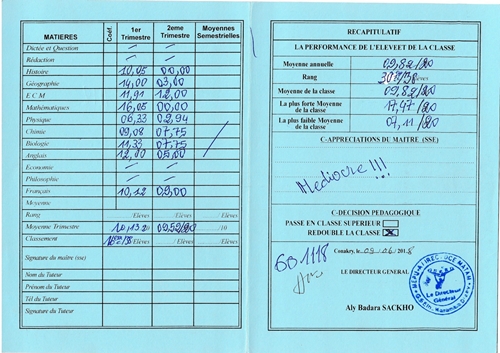 MATIERES Coéf. 1er Trimestre 2eme Trimestre Moyennes Semestrielles
Dictée et Question
Rédaction
Histoire 10,05 00,00
Géographie 14,00 03,00
E C M 11,91 12,00
Mathématiques 16,05 00,00
Physique 06,33 02,94
Chimie 09,08 07,75
Biologie 11,33 07,75
Anglais 12,00 05,00
Economie
Philosophie
Français 10,12 09,00
Moyenne
Rang /Elèves /Elèves /Elèves
Moyenne Trimestre /10
Classement /Elèves /Elèves
Signature du maître (sse)
Nom du Tuteur
Prénom du Tuteur
Tél du Tuteur
Signature du Tuteur
RECAPITULATIF
LA PERFORMANCE DE L'ELEVEET DE LA CLASSE
Moyenne annuelle 09,82/20
Rang
Moyenne de la classe 09,82/20
La plus forte Moyenne de la classe 17,47/20
La plus faible Moyenne de la classe 07,11/20
C-APPRECIATIONS DU MAITRE (SSE)
Mediocre!!!
C-DECISION PEDAGOGIQUE
PASSE EN CLASSE SUPERIEUR
REDOUBLE LA CLASSE
Conakry, le 09/06/2018
6B 1118
LE DIRECTEUR GENERAL
Le Directeur
Général
Aly Badara SACKHO